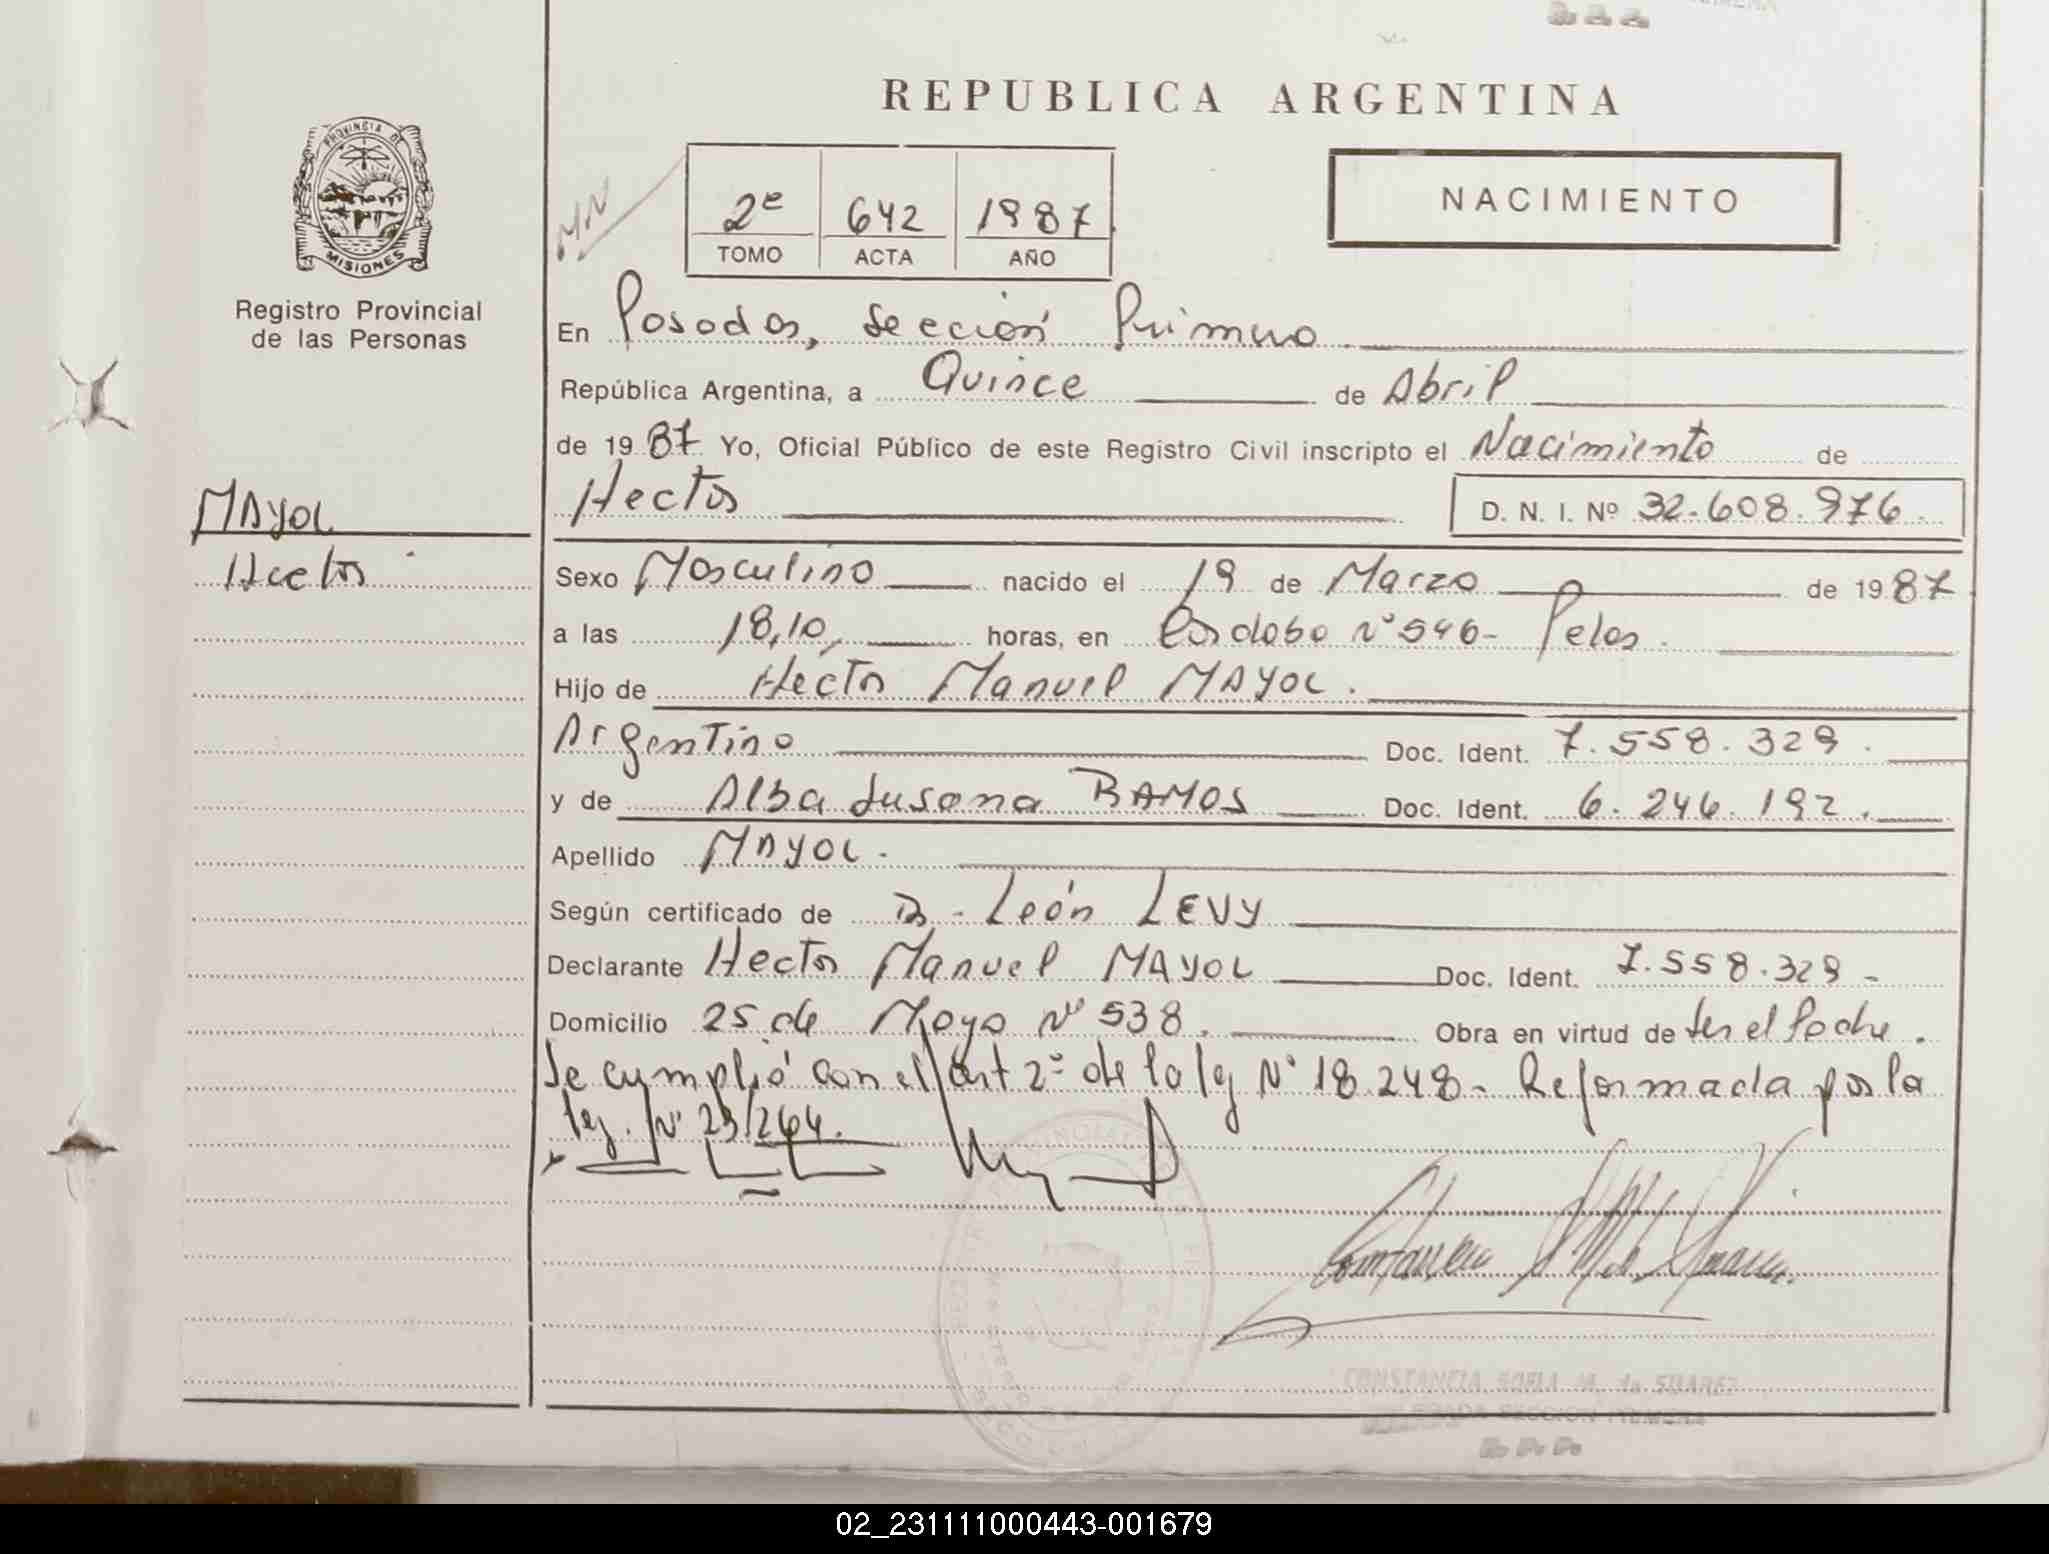 REPUBLICA ARGENTINA
PROVINCIA DE
MISIONES
Registro Provincial
de las Personas
2e 642 1987
TOMO ACTA AÑO
NACIMIENTO
En Posadas, Sección Primera
República Argentina, a Quince de Abril
de 1987 Yo, Oficial Público de este Registro Civil inscripto el Nacimiento de
Hector D. N. I. Nº 32.608.976.
MAYOL
Hector
Sexo Masculino nacido el 19 de Marzo de 1987
a las 18,10, horas, en Cordoba Nº 546- Pdas.
Hijo de Hector Manuel MAYOL.
Argentino Doc. Ident. 7.558.329.
y de Alba Susana RAMOS Doc. Ident. 6.246.192.
Apellido MAYOL.
Según certificado de D. León LEVY
Declarante Hector Manuel MAYOL Doc. Ident. 7.558.329-
Domicilio 25 de Mayo Nº 538. Obra en virtud de ser el Padre.
Se cumplió con el art 2º de la ley Nº 18.248- Reformada por la
ley. Nº 23.264.
CONSTANCIA SOFIA M. de SUAREZ
SECCION PRIMERA
02_231111000443-001679